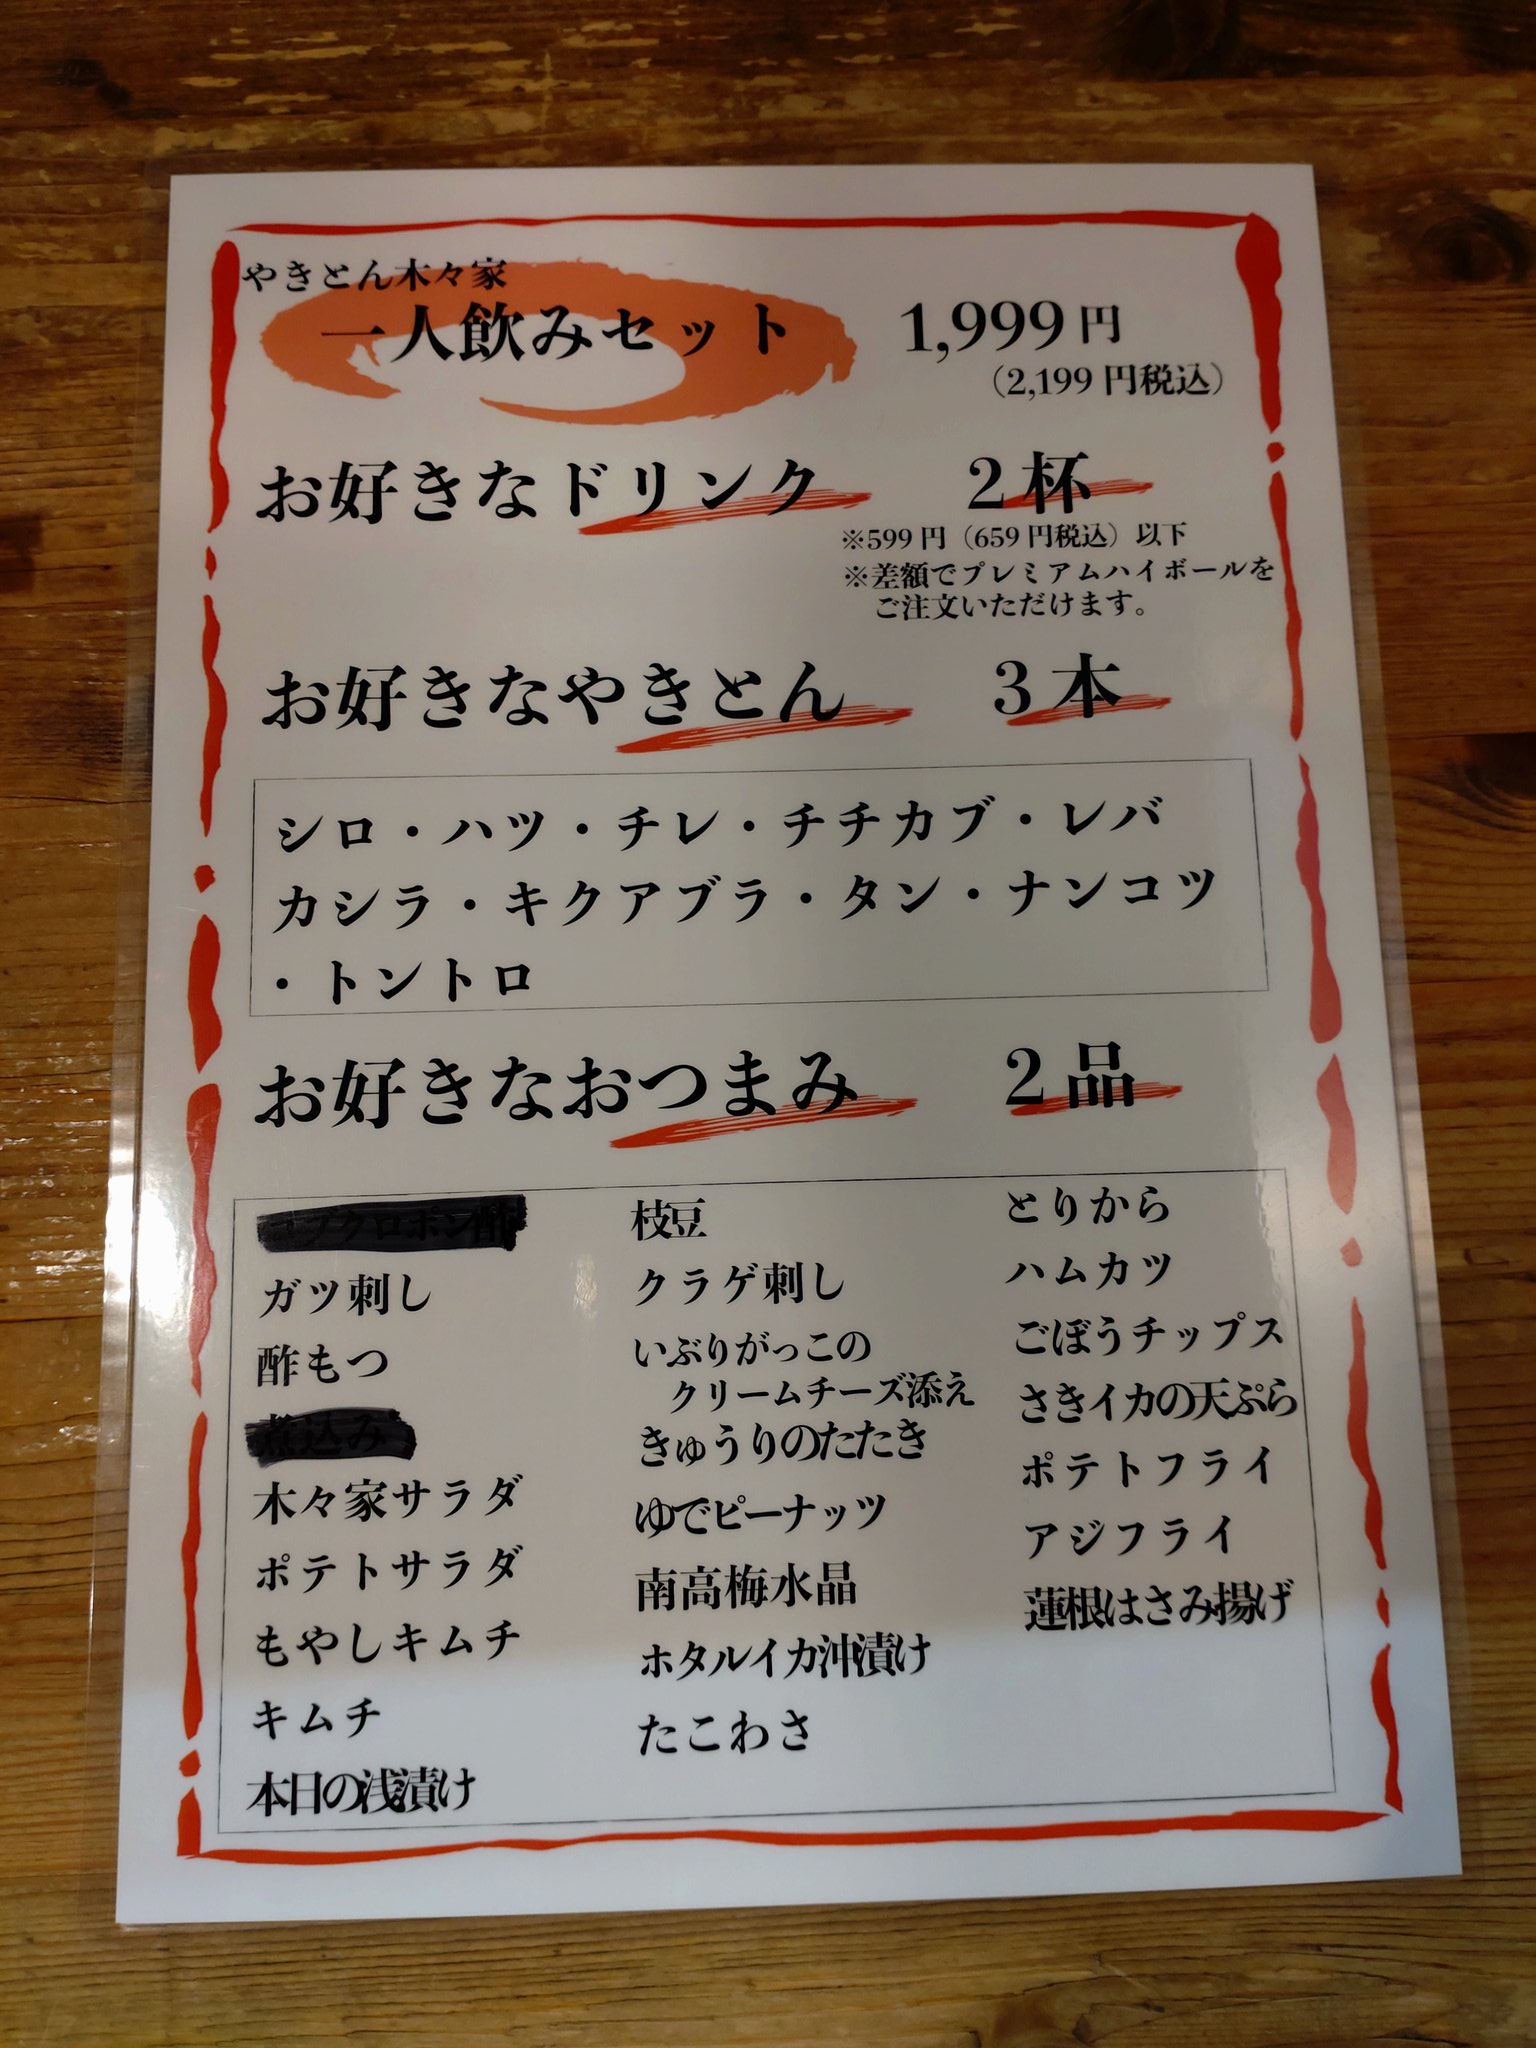 やきとん木々家
一人飲みセット 1,999円
（2,199円税込）
お好きなドリンク 2杯
※599円（659円税込）以下
※差額でプレミアムハイボールを
ご注文いただけます。
お好きなやきとん 3本
シロ・ハツ・チレ・チチカブ・レバ
カシラ・キクアブラ・タン・ナンコツ
・トントロ
お好きなおつまみ 2品
ガツ刺し
酢もつ
煮込み
木々家サラダ
ポテトサラダ
もやしキムチ
キムチ
本日の浅漬け
枝豆
クラゲ刺し
いぶりがっこの
クリームチーズ添え
きゅうりのたたき
ゆでピーナッツ
南高梅水晶
ホタルイカ沖漬け
たこわさ
とりから
ハムカツ
ごぼうチップス
さきイカの天ぷら
ポテトフライ
アジフライ
蓮根はさみ揚げ